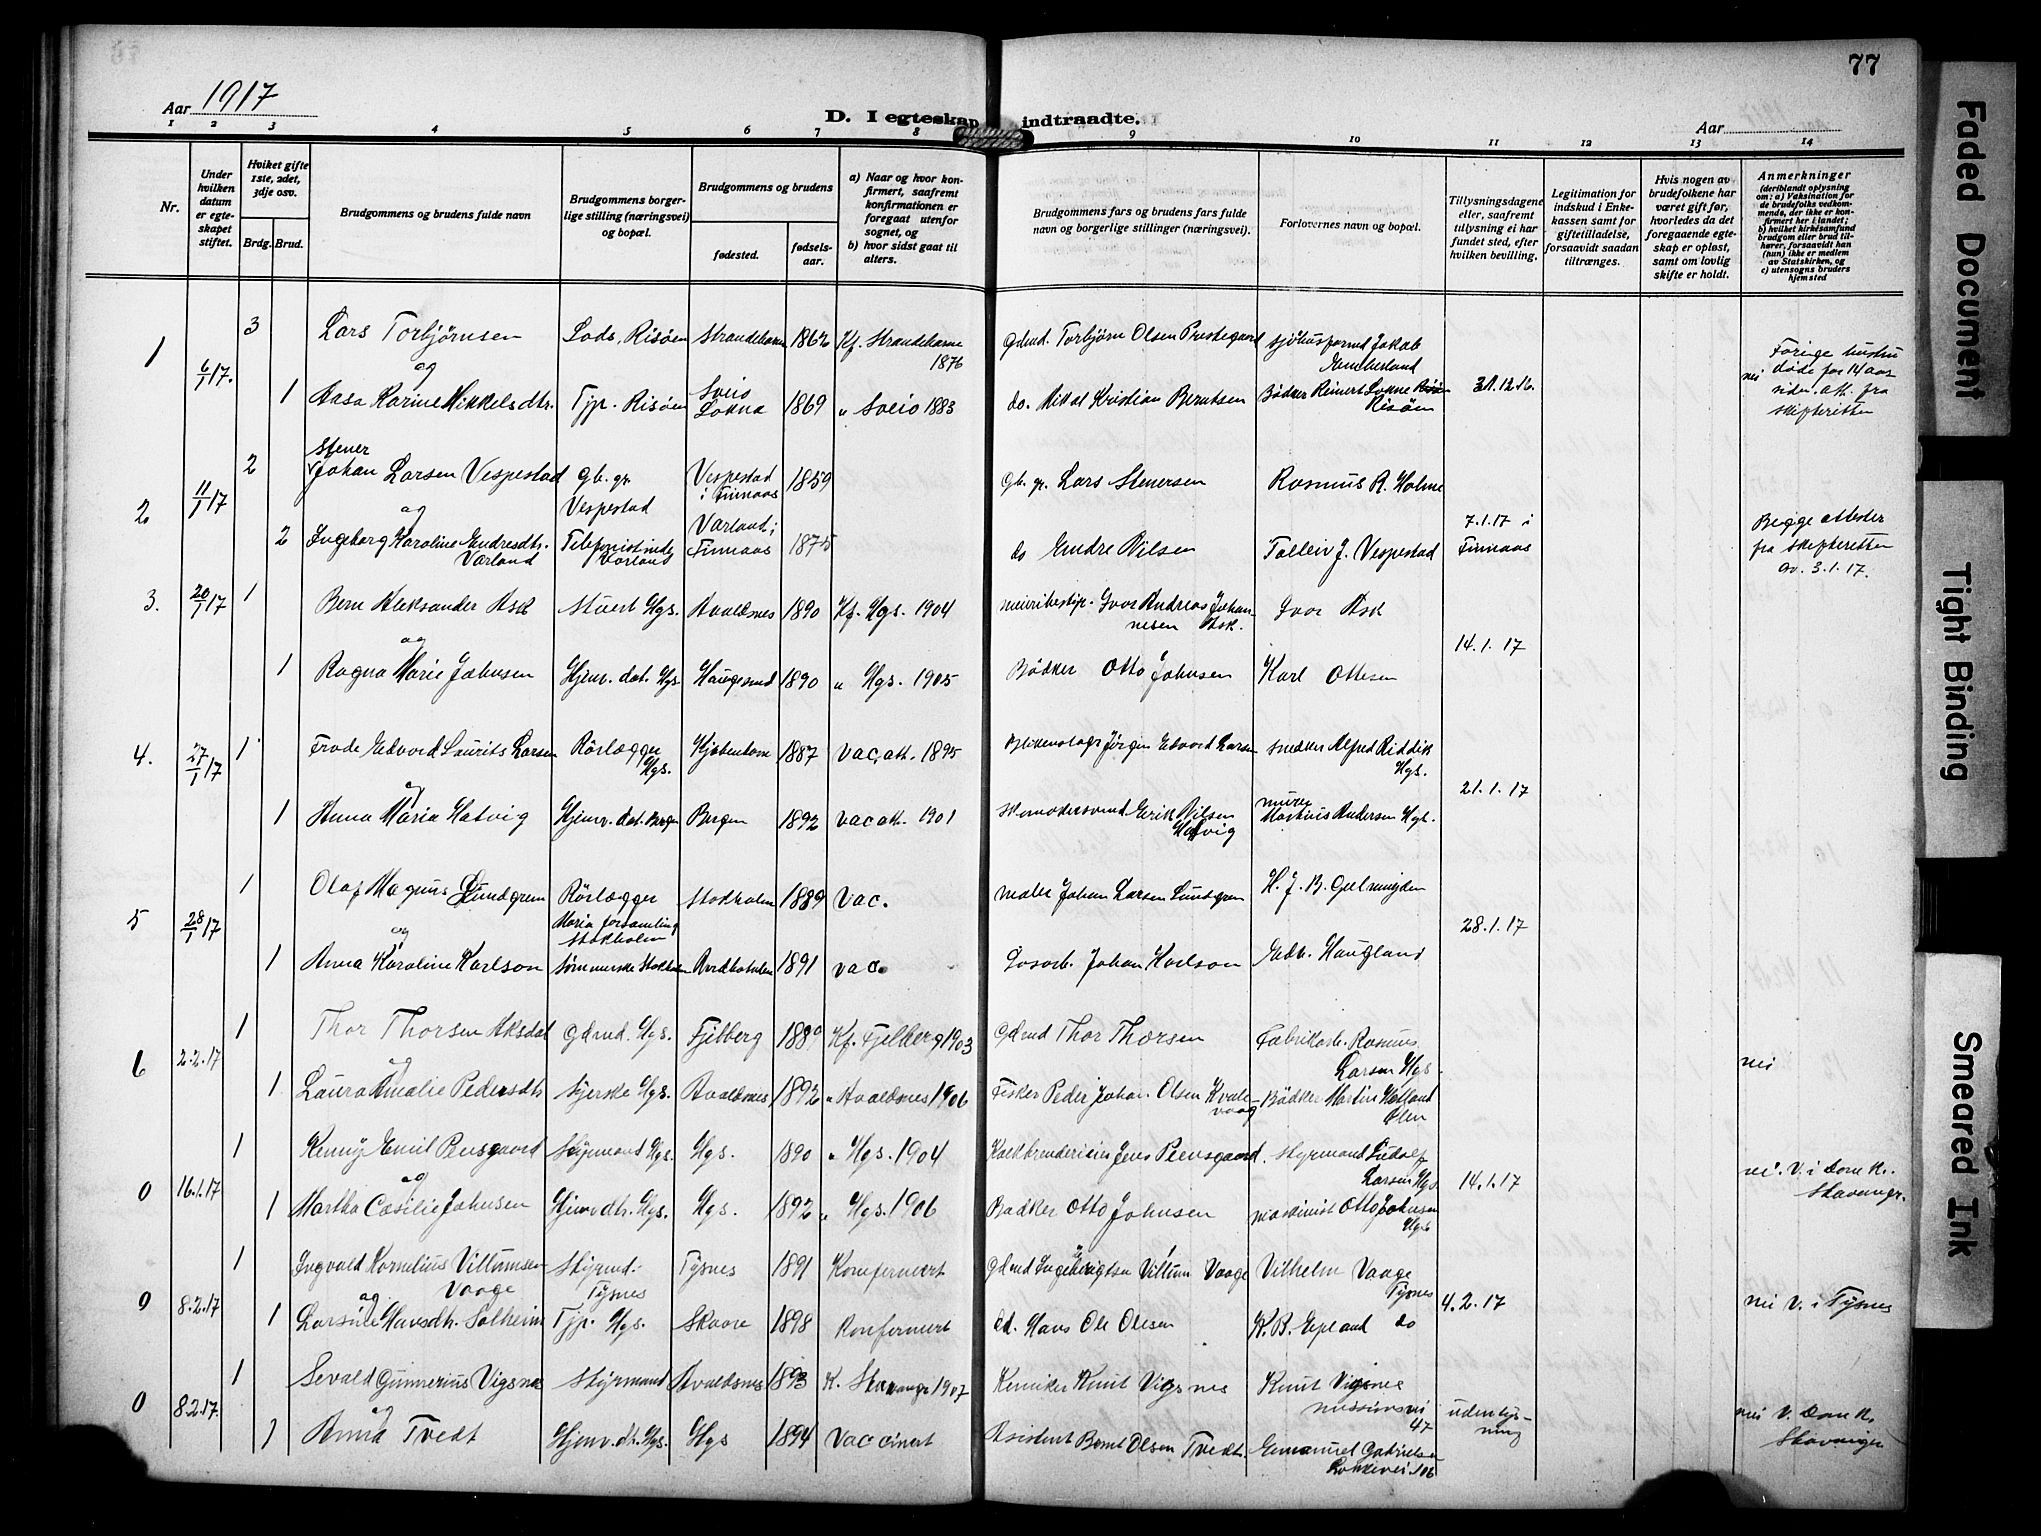 77
Aar 1917
D. I egteskap indtraadte.
Aar
1 2 3 4 5 6 7 8 9 10 11 12 13 14
Nr.
Under hvilken datum er egteskapet stiftet.
Hviket gifte 1ste, 2det, 3dje osv.
Brdg. Brud.
Brudgommens og brudens fulde navn
Brudgommens borgerlige stilling (næringsvei) og bopæl.
Brudgommens og brudens
fødested. fødselsaar.
a) Naar og hvor konfirmert, saafremt konfirmationen er foregaat utenfor sognet, og
b) hvor sidst gaat til alters.
Brudgommens fars og brudens fars fulde navn og borgerlige stillinger (næringsvei).
Forlovernes navn og bopæl.
Tillysningsdagene eller, saafremt tillysning ei har fundet sted, efter hvilken bevilling.
Legitimation for indskud i Enkekassen samt for giftetilladelse, forsaavidt saadan tiltrænges.
Hvis nogen av brudefolkene har været gift før, hvorledes da det foregaaende egteskap er opløst, samt om lovlig skifte er holdt.
Anmerkninger
(deriblandt oplysning om: a) Vaksination for de brudefolks vedkommende, der ikke er konfirmert her i landet; b) hvilket kirkesamfund brudgom eller brud tilhører, forsaavidt han (hun) ikke er medlem av Statskirken, og c) utensogns bruders hjemsted
1 6/1 17. 3 Lars Torbjørnsen Lods, Risøen Strandebarm 1862 Kf. Strandebarm 1876 Gdmd. Torbjørn Olsen Prestegaard Jakob
og
1 Aasa Karine Mikkelsdtr. Tjp. Risøen Sveio Lokna 1869 " Sveio 1883 do. Mikal Kristian Berntsen Bødker Reinert Lokne Risøen 31.12.16. nei Forige hustru døde for 14 aar siden. att. fra skifteretten
2 11/1 17 2 Stener Johan Larsen Vespestad Gb. gr. Vespestad Vespestad i Finnaas 1859 Gb. gr. Lars Stenersen Rasmus R. Holme
og
2 Ingeborg Karoline Endresdtr. Varland Telefonistinde Varland Varland i Finnaas 1875 do Endre Nilsen Tolleiv J. Vespestad 7.1.17 i Finnaas Begge attester fra skifteretten av. 3.1.17.
3. 20/1 17 1 Bern Aleksander Ask Stuert Hgs. Avaldsnes 1890 Kf. Hgs. 1904 Ivar Andreas Johannesen Ask. Ivar Ask
og
1 Ragna Marie Johnsen Hjemv. dat. Hgs. Haugesund 1890 " Hgs. 1905 Bødker Otto Johnsen Karl Ottesen 14.1.17
4. 27/1 17 1 Frode Edvord Laurits Larsen Rørlægger Hgs. Kjøbenhavn 1887 vac. att. 1895 Jørgen Edvord Larsen snedker Alfred Riddik Hgs.
og
1 Anna Maria Hatvig Hjemv. dat. Bergen Bergen 1892 vac att. 1901 Skomakersvend Erik Nilsen Hatvig murer Markus Andersen Hgs. 21.1.17
5 28/1 17 1 Olaf Magnus Lundgren Rørlægger Maria forsamling Stokholm Stokholm 1889 Vac. maler Johan Larsen Lundgren H. J. B. Gulmyden
og
1 Anna Karoline Karlson Sømmerske Stokholm 1891 vac. Losarb. Johan Karlson Edv. Haugland 28.1.17
6 2.2.17 1 Thor Thorsen Aksdal Gdmd. Hgs. Fjelberg 1889 Kf. Fjelberg 1903 Gdmd Thor Thorsen Fabrikarb. Rasmus Larsen Hgs.
og
1 Laura Amalie Pedersdtr Syerske Hgs. Avaldsnes 1892 " Avaldsnes 1906 Fisker Peder Johan Olsen Kvalevaag Bødker Martin Hetland Ølen nei
0 16.1.17 1 Emil Pensgaard Styrmand Hgs. Hgs. 1890 " Hgs. 1904 Jens Pensgaard. Styrmand Ludolf Larsen Hgs
og
1 Martha Casilie Johnsen Hjemv dtr. Hgs. Hgs. 1892 " Hgs. 1906 Bødker Otto Johnsen maskinist Otto Johnsen Hgs 14.1.17 nei. V. i Domk. Stavanger.
9 8.2.17 1 Ingvald Kornelius Villumsen Vaage Styrmd. Tysnes Tysnes 1891 Konfermert Gdmd Ingebrigtsen Villum Vaage Vilhelm Vaage Tysnes
og
1 Larsine Hansdtr. Solheim Tjp. Hgs. Skaare 1898 Konfermert Gd. Hans Ole Olsen K. B. Epland do 4.2.17 nei V. i Tysnes
0 8.2.17. 1 Sevald Gunnerius Vigsnes Styrmand Avaldsnes 1893 K. Stavanger 1907 Kemiker Knut Vigsnes Knut Vigsnes missionsvei 47
og
1 Anna Tvedt Hjemv. dtr. Hgs. Hgs 1894 Vaccinert Asistent Bernt Olsen Tvedt Emanuel Gabrielsen uden lysning nei V. Domk. Stavanger
Faded Document
Tight Binding
Smeared Ink